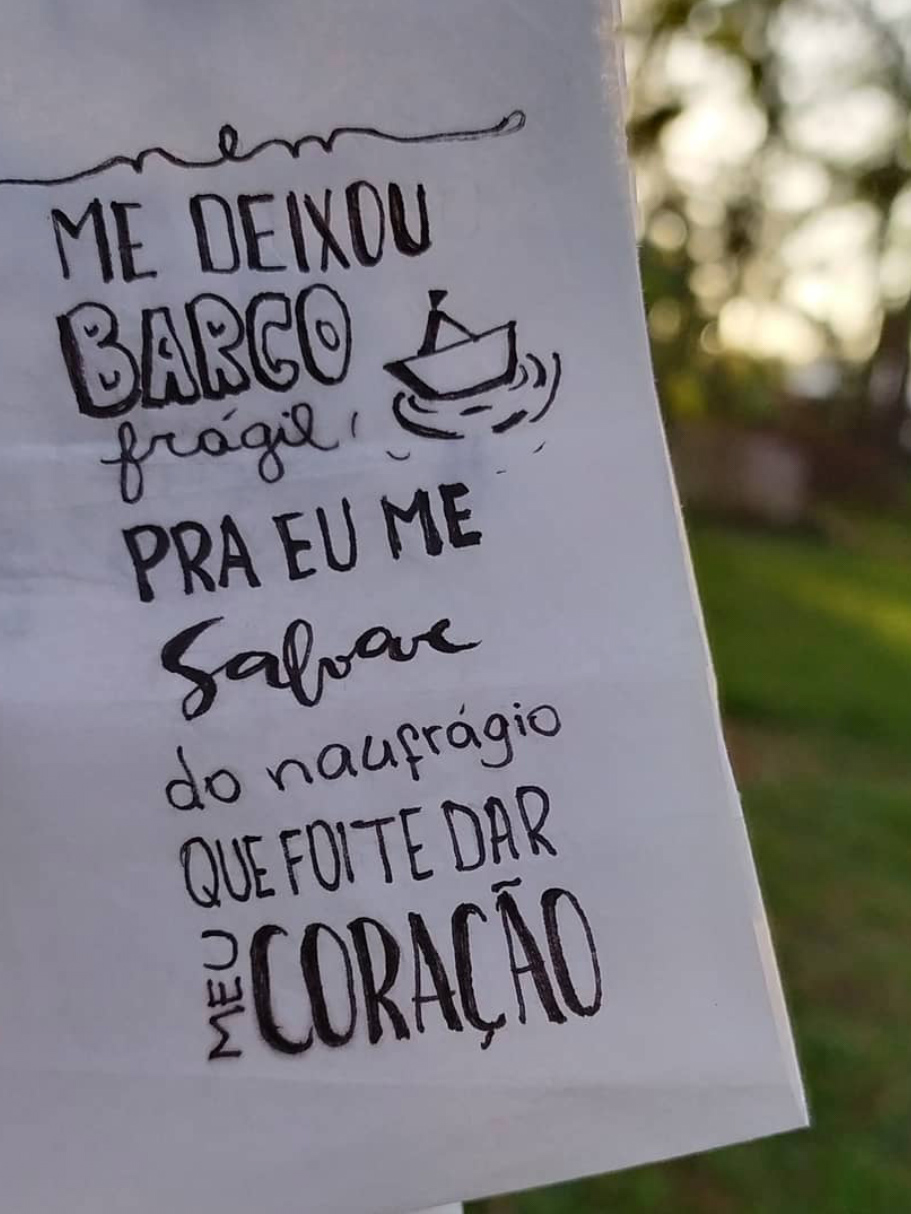 nem
ME DEIXOU
BARCO
frágil,
PRA EU ME
Salvar
do naufrágio
QUE FOI TE DAR
MEU CORAÇÃO